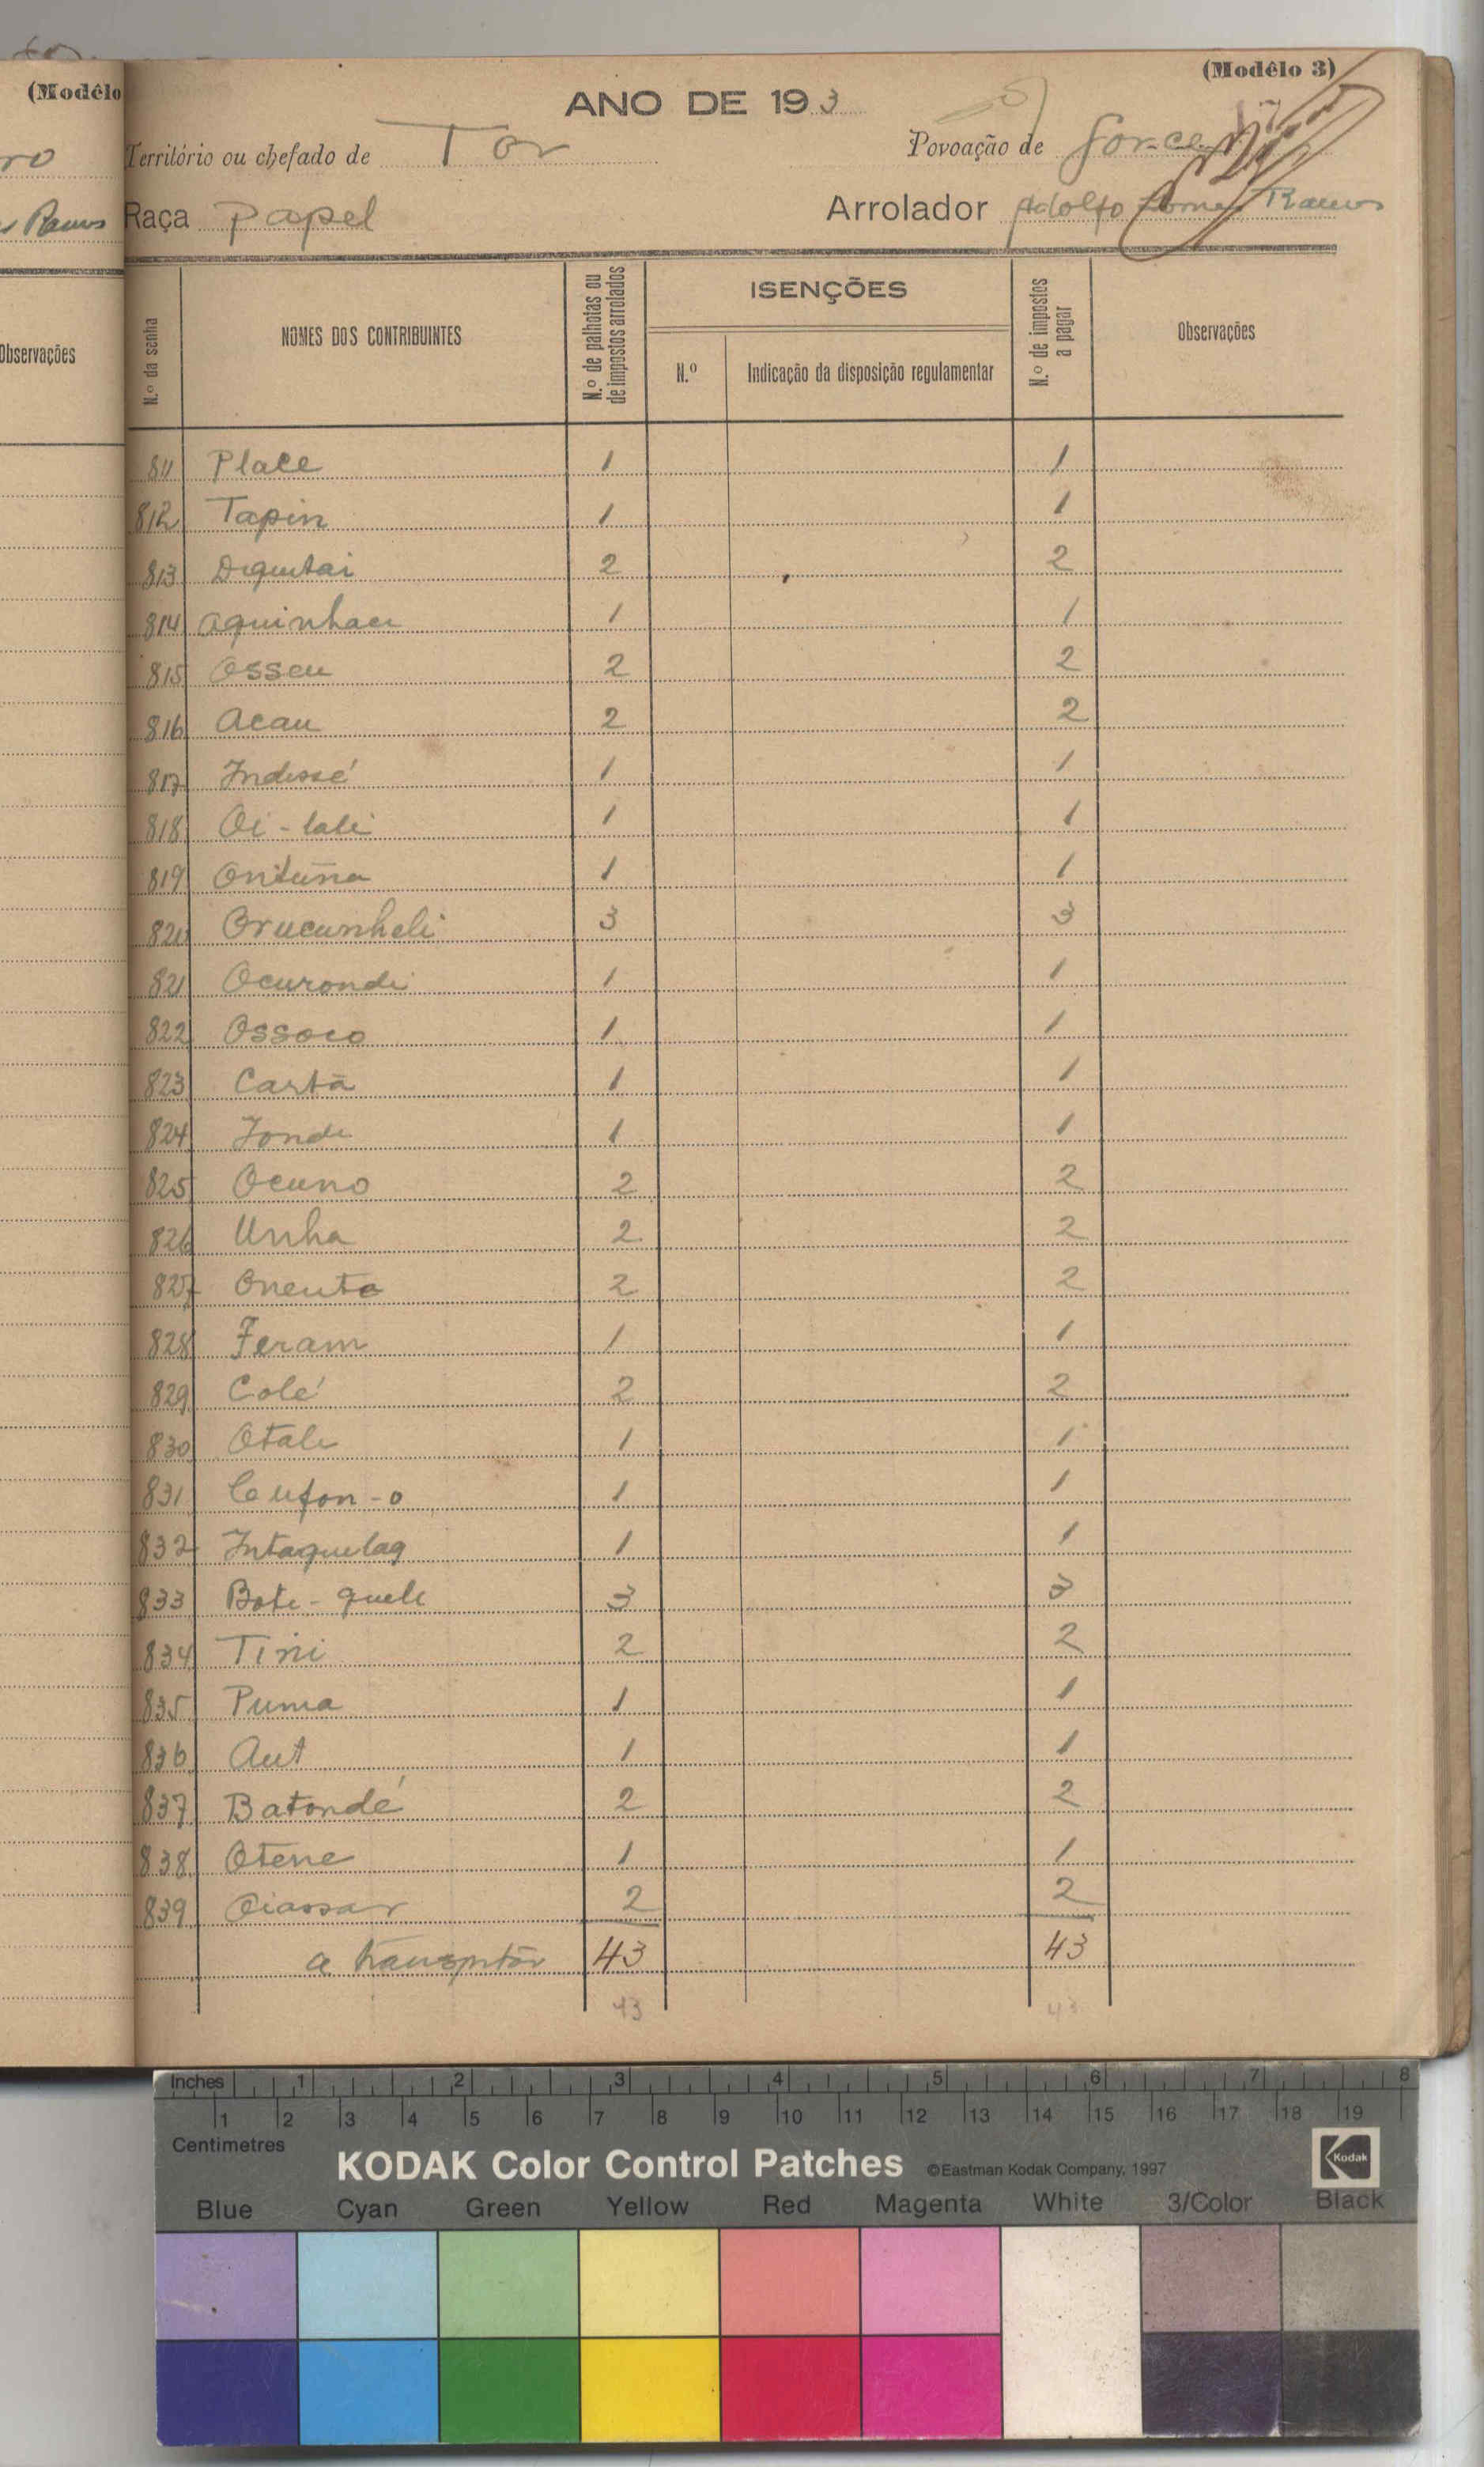 (Modêlo
(Modêlo 3)
ANO DE 193
Território ou chefado de Tor
Povoação de
Raça Papel
Arrolador Adolfo Gomes Ramos
ro
Ramos
Observações
N.º da senha
NOMES DOS CONTRIBUINTES
N.º de palhotas ou de impostos arrolados
ISENÇÕES
N.º
Indicação da disposição regulamentar
N.º de impostos a pagar
Observações
811 Place 1 1
812 Tapin 1 1
813 Diquitai 2 2
814 Aquinhaci 1 1
815 Osseu 2 2
816 Acau 2 2
817 Indissé 1 1
818 Oi-lali 1 1
819 Ontuna 1 1
820 Orucunheli 3 3
821 Ocurondi 1 1
822 Ossoco 1 1
823 Cartã 1 1
824 Jondi 1 1
825 Ocuno 2 2
826 Unha 2 2
827 Oneuta 2 2
828 Feram 1 1
829 Colé 2 2
830 Otali 1 1
831 Cufon-o 1 1
832 Intaquilaq 1 1
833 Bote-queli 3 3
834 Tini 2 2
835 Puma 1 1
836 Aut 1 1
837 Batondé 2 2
838 Otene 1 1
839 Oiassar 2 2
a transportar 43 43
43 43
Inches 1 2 3 4 5 6 7 8
1 2 3 4 5 6 7 8 9 10 11 12 13 14 15 16 17 18 19
Centimetres
KODAK Color Control Patches ©Eastman Kodak Company, 1997 Kodak
Blue Cyan Green Yellow Red Magenta White 3/Color Black